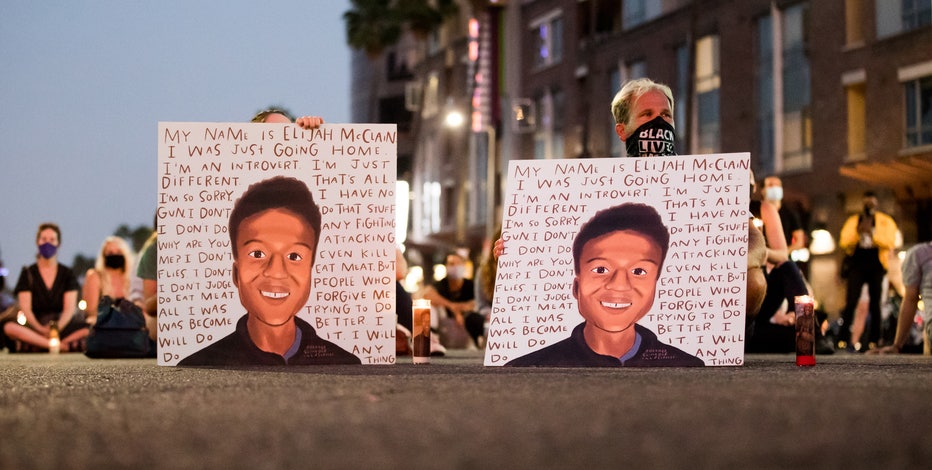 MY NAME IS ELIJAH McCLAIN
I WAS JUST GOING HOME.
I'M AN INTROVERT. I'M JUST
DIFFERENT. THAT'S ALL
I'M SO SORRY I HAVE NO
GUN I DON'T DO THAT STUFF
I DON'T DO ANY FIGHTING
WHY ARE YOU ATTACKING
ME? I DON'T EVEN KILL
FLIES I DON'T EAT MEAT. BUT
I DON'T JUDGE PEOPLE WHO
DO EAT MEAT FORGIVE ME
ALL I WAS TRYING TO DO
WAS BECOME BETTER. I
WILL DO IT. I WILL
DO ANY
THING
MY NAME IS ELIJAH McCLAIN
I WAS JUST GOING HOME.
I'M AN INTROVERT. I'M JUST
DIFFERENT. THAT'S ALL
I'M SO SORRY I HAVE NO
GUN I DON'T DO THAT STUFF
I DON'T DO ANY FIGHTING
WHY ARE YOU ATTACKING
ME? I DON'T EVEN KILL
FLIES I DON'T EAT MEAT. BUT
I DON'T JUDGE PEOPLE WHO
DO EAT MEAT FORGIVE ME
ALL I WAS TRYING TO DO
WAS BECOME BETTER. I
WILL DO IT. I WILL
DO ANY
THING
BLACK
LIVES